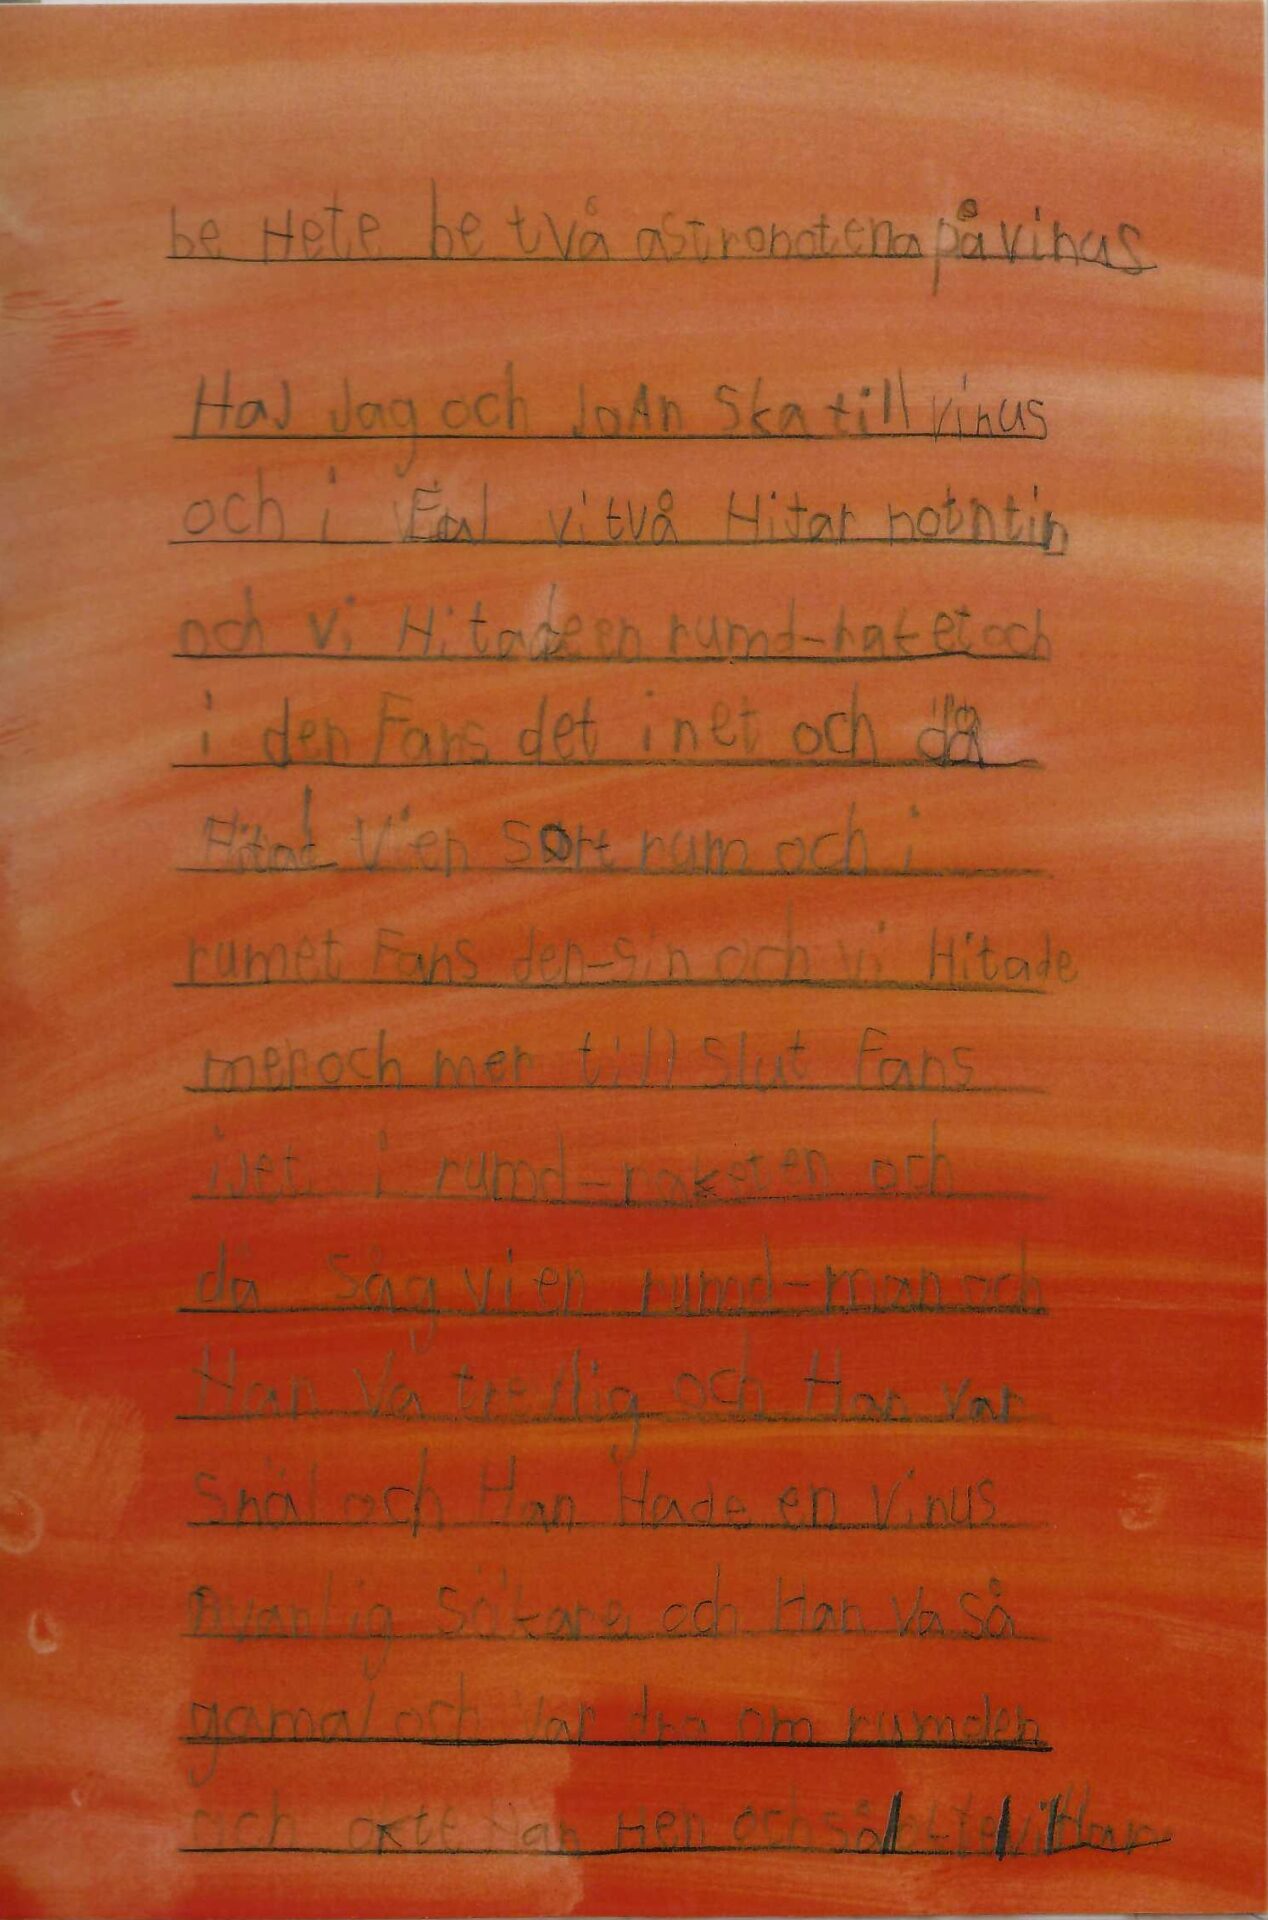 be Hete be två astronotena på vinus
HaJ Jag och JoAn Ska till vinus
och i Fal vi två Hitar notntin
och vi Hitade en rumd-raket och
i den Fans det inet och då
Hitad Vi en Sort rum och i
rumet Fans den-sin och vi Hitade
mer och mer till Slut Fans
i rumd-raketen och
då Såg vi en rumd-man och
Han Va trevlig och Han Var
Snäl och Han Hade en Vinus
Sökare och Han Va Så
gamal och Var dra om rumden
och okte Han Hen och så